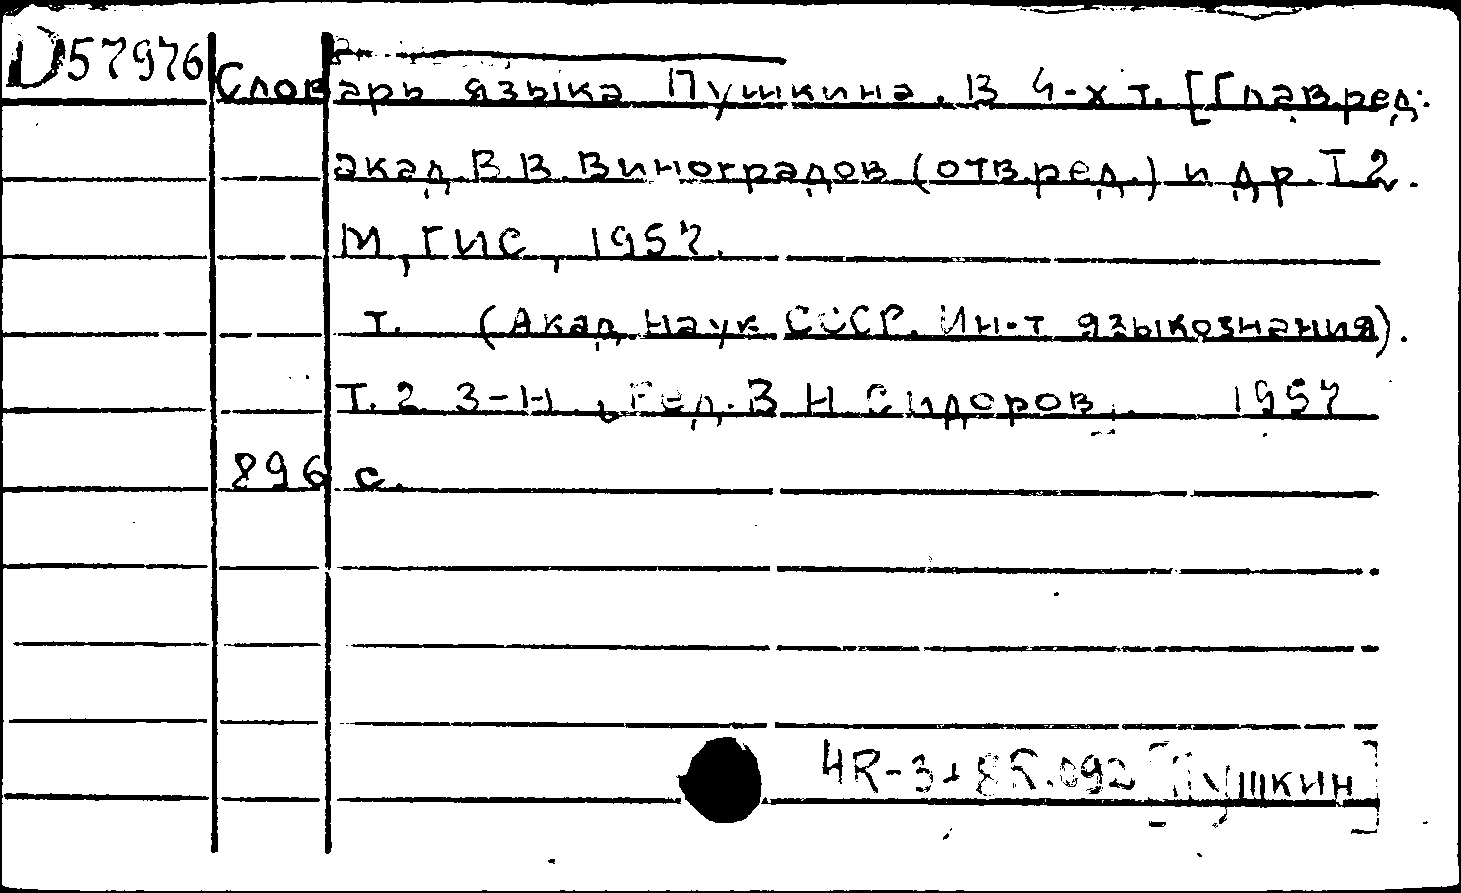 D57976
Словарь языка Пушкина. В 4-х т. [Глав.ред.:
акад. В.В.Виноградов (отв.ред.) и др. Т.2.
М, ГИС, 1957.
т. (Акад. наук СССР. Ин-т языкознания).
Т.2. З-Н. [Ред. В.Н.Сидоров]. 1957
896 с.
4R-3+8R.092 [Пушкин]